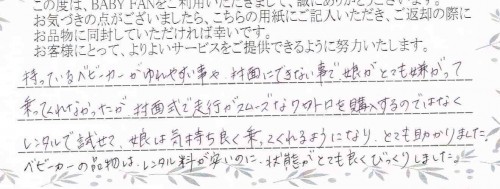 この度は、BABY FANをご利用いただきまして、誠にありがとうございます。
お気づきの点がございましたら、こちらの用紙にご記入いただき、ご返却の際に
お品物に同封していただければ幸いです。
お客様にとって、よりよいサービスをご提供できるように努力いたします。
持っているベビーカーがゆれやすい事や、対面にできない事で、娘がとても嫌がって
乗ってくれなかったが、対面式で走行がスムーズなクワトロを購入するのではなく
レンタルで試せて、娘は気持ち良く乗ってくれるようになり、とても助かりました。
ベビーカーの品物は、レンタル料が安いのに、状態がとても良くびっくりしました。